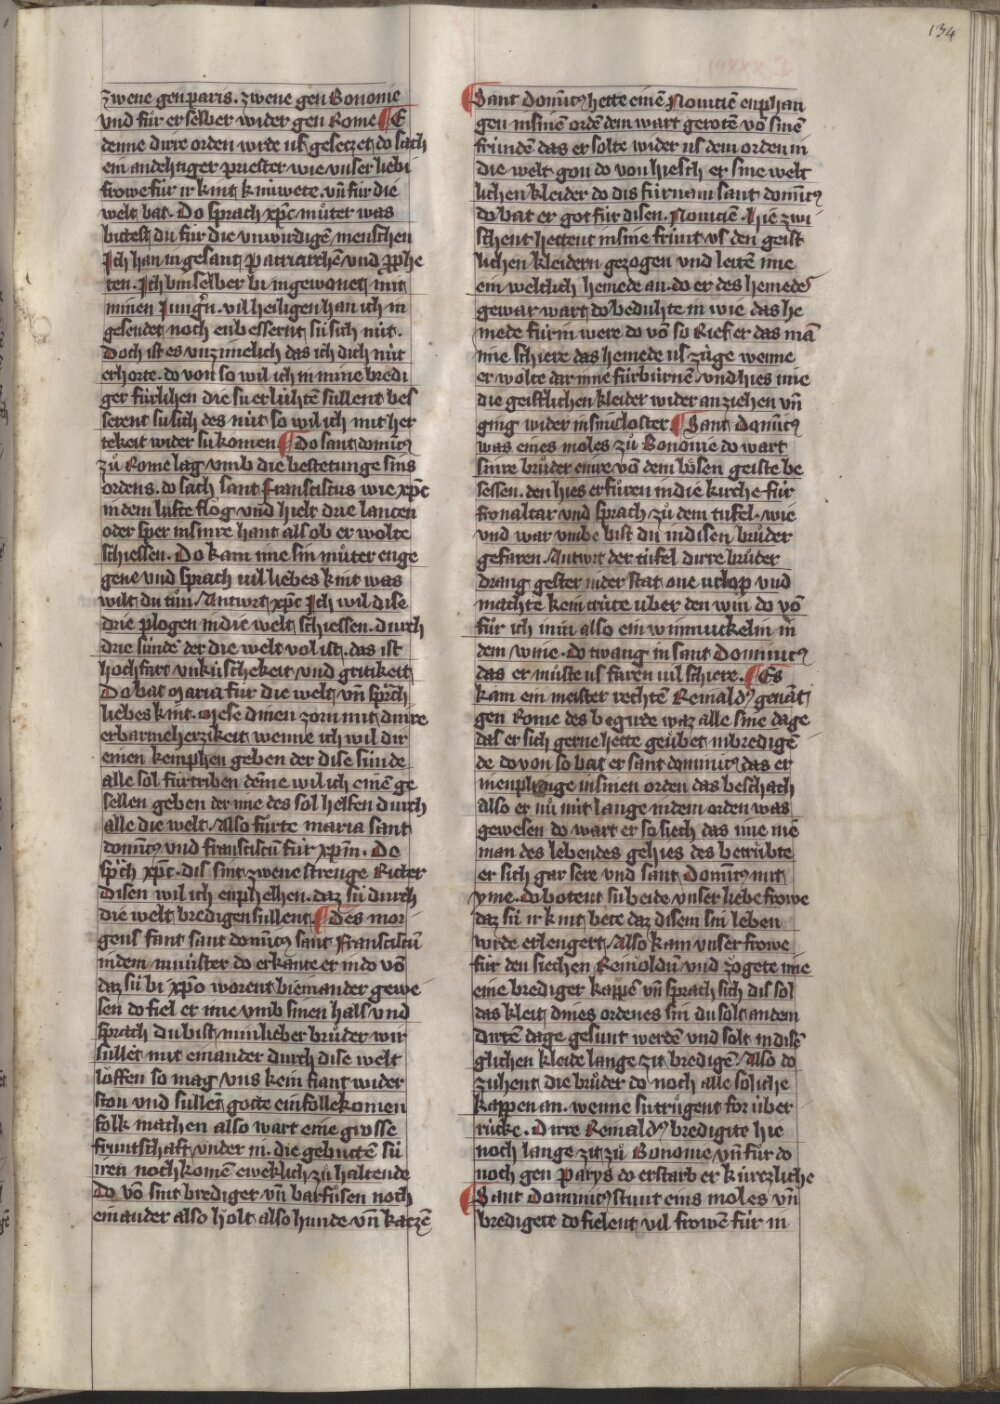 134
zwene gen paris. zwene gen Bononie
vnd fůr er selber wider gen Rome ¶ E
denne dirre orden wrde uf gesetzet do sach
ein andehtiger priester wie vnser liebi
frowe fúr ir kint knuwete. vn̄ fúr die
welt bat. Do sprach xp̄c můter was
bittest du fúr die vnwirdigē menschen
Ich han in gesant patriarchē vnd prophe
ten. Ich bin selber bi in gewonet mit
minen Jungr̄n. vil heiligen han ich in
gesendet noch enbessernt sú sich nút.
Doch ist es vnzimelich das ich dich nút
erhorte. do von so wil ich in mine bredi
ger fúrlihen die su erlúhtē sullent bes
serent su sich des nút so wil ich mit her
tekeit wider su komen ¶ Do sant dominicꝰ
zů Rome lag vmb die bestetunge sins
ordens. do sach sant Franciscus wie xp̄c
in dem lufte flog vnd hielt drie lancen
oder sper in sinre hant als ob er wolte
schiessen. Do kam ime sin můter enge
gene vnd sprach uil liebes kint was
wilt du tůn. Antwrt xp̄c Ich wil dise
drie plogen in die welt schiessen. durch
drie súnde der die welt vol ist. das ist
hochfart vnkúschekeit vnd gritikeit
Do bat Maria fúr die welt vn̄ sprach
liebes kint. Mese dinen zorn mit dinre
erbarmeherzikeit wenne ich wil dir
einen kemphen geben der dise súnde
alle sol fúrtriben deme wil ich einē ge
sellen geben der ime des sol helfen durch
alle die welt. Also fůrte maria sant
dominicꝰ vnd franciscū fúr xpm̄. Do
sp̄ch xp̄c. dis sint zwene strenge Ritter
disen wil ich enphelhen. daz sú durch
die welt bredigen sullent. ¶ Des mor
gens fant sant dominicꝰ sant Franciscū
in dem múnster do erkante er in do vō
daz sú bi xpo worent bi einander gewe
sen do fiel er ime vmb sinen hals vnd
sprach du bist min lieber brůder wir
súllēt mit einander durch dise welt
lŏffen so mag vns kein fiant wider
ston vnd sullen gotte ein follekomen
folk machen also wart eine grosse
fruntschaft vnder in. die gebuttē sú
iren nochkomē eweklich zů haltende
Do vō sint brediger vn̄ barfůsen noch
einander also holt also hunde vn̄ katzē
¶ Sant dominicꝰ hette einē Nouicien enphan
gen in sinē ordē dem wart gerotē vō sinē
fründē das er solte wider us dem orden in
die welt gon do von hiesch er sine welt
lichen kleider do dis fúrnam sant dominicꝰ
do bat er got fúr disen. Nouiciē. hie zwi
schent hettent in sine frúnt vs den geist
lichen kleidern gezogen vnd leitē ime
ein weltlich hemede an. do er des hemedes
gewar wart do beduhte in wie das he
mede fúrin were do vō so Rief er das mā
ime schiere das hemede us zúge wenne
er wolte dar inne fúrbúrnē vnd hies ime
die geistlichen kleider wider anziehen vn̄
ging wider in sin closter ¶ Sant dominicꝰ
was eines moles zů Bononie do wart
sinre brůder einre vō dem bŏsen geiste be
sessen. den hies er fůren in die kirche fúr
fronaltar vnd sprach zů dem tufel. wie
vnd war vmbe bist du in disen brůder
gefaren. Antwrt der túfel dirre brůder
drang gester in der stat one urlop vnd
machte kein crúce über den win do vō
fůr ich in in also ein winmuckelin in
dem wine. do twang in sant dominicꝰ
das er můste us faren uil schiere. ¶ Es
kam ein meister rechtē Reinaldꝰ genāt
gen Rome des begirde waz alle sine dage
das er sich gerne hette geúbet in bredigē
de do von so bat er sant dominicū das er
in enphinge in sinen orden das beschach
also er nů nit lange in dem orden was
gewesen do wart er so siech das ime nie
man des lebendes gehies des betrúbte
er sich gar sere vnd sant dominicꝰ mit
yme. do botent sú beide vnser liebe frowe
daz sú ir kint bete daz disem sin leben
wrde erlengert. Also kam vnser frowe
fúr den siechen Reinoldū vnd zŏgete ime
eine brediger kappē vn̄ sprach sich dis sol
das kleit dines ordenes sin du solt an dem
dirtē dage gesunt werdē vnd solt in disē
glichen kleide lange zit bredigē. Also do
zuhent die brůder do noch alle soliche
kappen an. wenne su trůgent for über
rúcke. Dirre Reinaldꝰ bredigite hie
noch lange zit zů Bononie vn̄ fůr do
noch gen Parys do erstarb er kúrczliche
¶ Sant dominicꝰ stunt eins moles vn̄
bredigete do fielent vil frowē fúr in